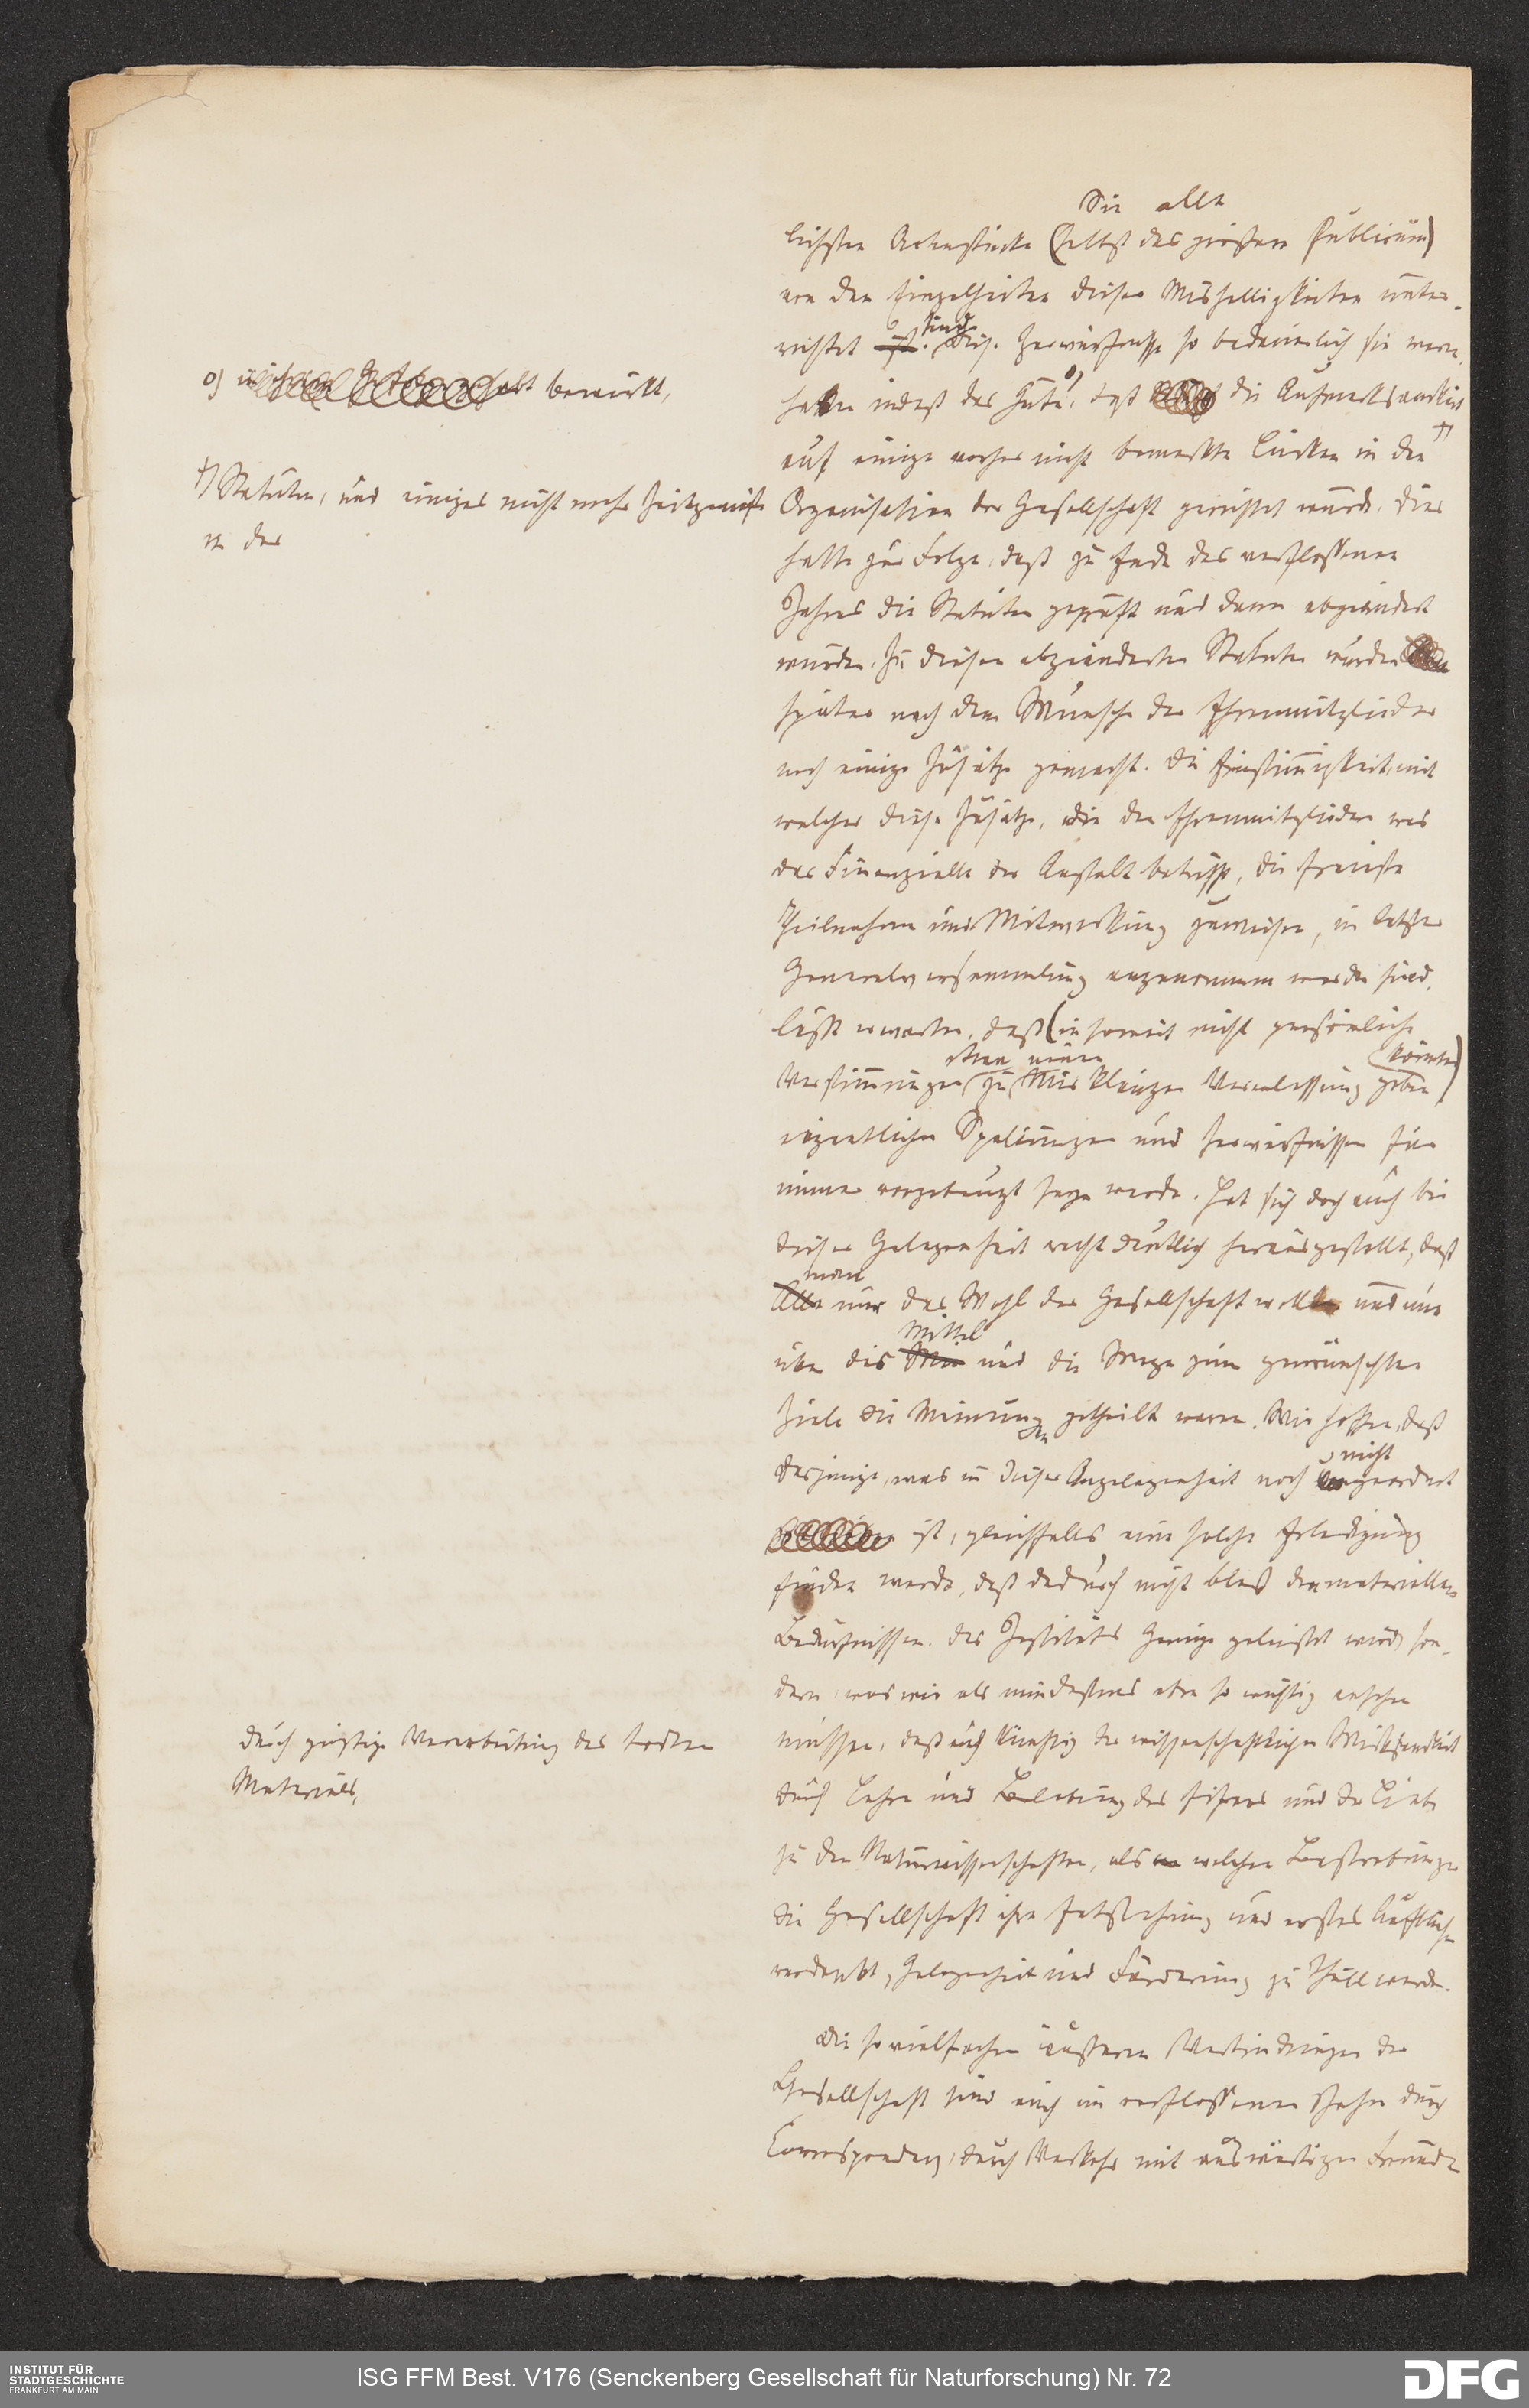 Sie alle
lichsten Actenstücke (selbst das grössere Publicum)
von den Einzelheiten dieser Mishelligkeiten unter-
richtet ist. sind Diese Zerwürfnisse so bedauerlich sie waren,
haben indeß das Gute, o) daß die Aufmerksamkeit
auf einige vorher nicht bemerkte Lücken in den †)
Organisation der Gesellschaft gerichtet wurde. Dies
hatte zur Folge, daß zu Ende des verflossenen
Jahres die Statuten geprüft und dann abgeändert
wurden. Zu diesen abgeänderten Statuten wurden
später nach dem Wunsche der Ehrenmitglieder
noch einige Zusätze gemacht. Die Einstimmigkeit, mit
welcher diese Zusätze, die den Ehrenmitgliedern was
das Finanzielle der Anstalt betrifft, die freieste
Theilnahme und Mitwirkung zuweisen, in letzter
Generalversammlung angenommen worden sind,
läßt erwarten, daß (in soweit nicht persönliche
Verstimmungen zu Mis klängen Veranlassung geben könnten)
eigentlichen Spaltungen und Zerwürfnissen für
immer vorgebeugt seyn werde. Hat sich doch auch bei
dieser Gelegenheit recht deutlich herausgestellt, daß
Alle man nur das Wohl der Gesellschaft wollte und nur
über die Mittel und die Wege zum gewünschten
Ziele die Meinungen getheilt waren. Wir hoffen, daß
dasjenige, was in dieser Angelegenheit noch nicht geordnet
ist, gleichfalls eine solche Erledigung
finden werde, daß dadurch nicht bloß den materiellen
Bedürfnissen des Instituts Genüge geleistet wird, son-
dern, was wir als mindestens eben so wichtig ansehen
müssen, daß auch künftig der wissenschaftlichen Wirksamkeit
durch Lehre und Belebung des Eifers und der Liebe
zu den Naturwissenschaften, als welchen Bestrebungen
die Gesellschaft ihre Entstehung und erstes Aufblühen
verdankt, Gelegenheit und Förderung zu Theil werde.
Die so vielfachen äusseren Verbindungen der
Gesellschaft sind auch im verflossenen Jahre durch
Correspondenz, durch Verkehr mit auswärtigen Freunden
o) bewirkt,
†) Statuten, und einiges nicht mehr Zeitgemäße
in der
durch geistige Verarbeitung des todten
Materials,
INSTITUT FÜR
STADTGESCHICHTE
FRANKFURT AM MAIN
ISG FFM Best. V176 (Senckenberg Gesellschaft für Naturforschung) Nr. 72
DFG